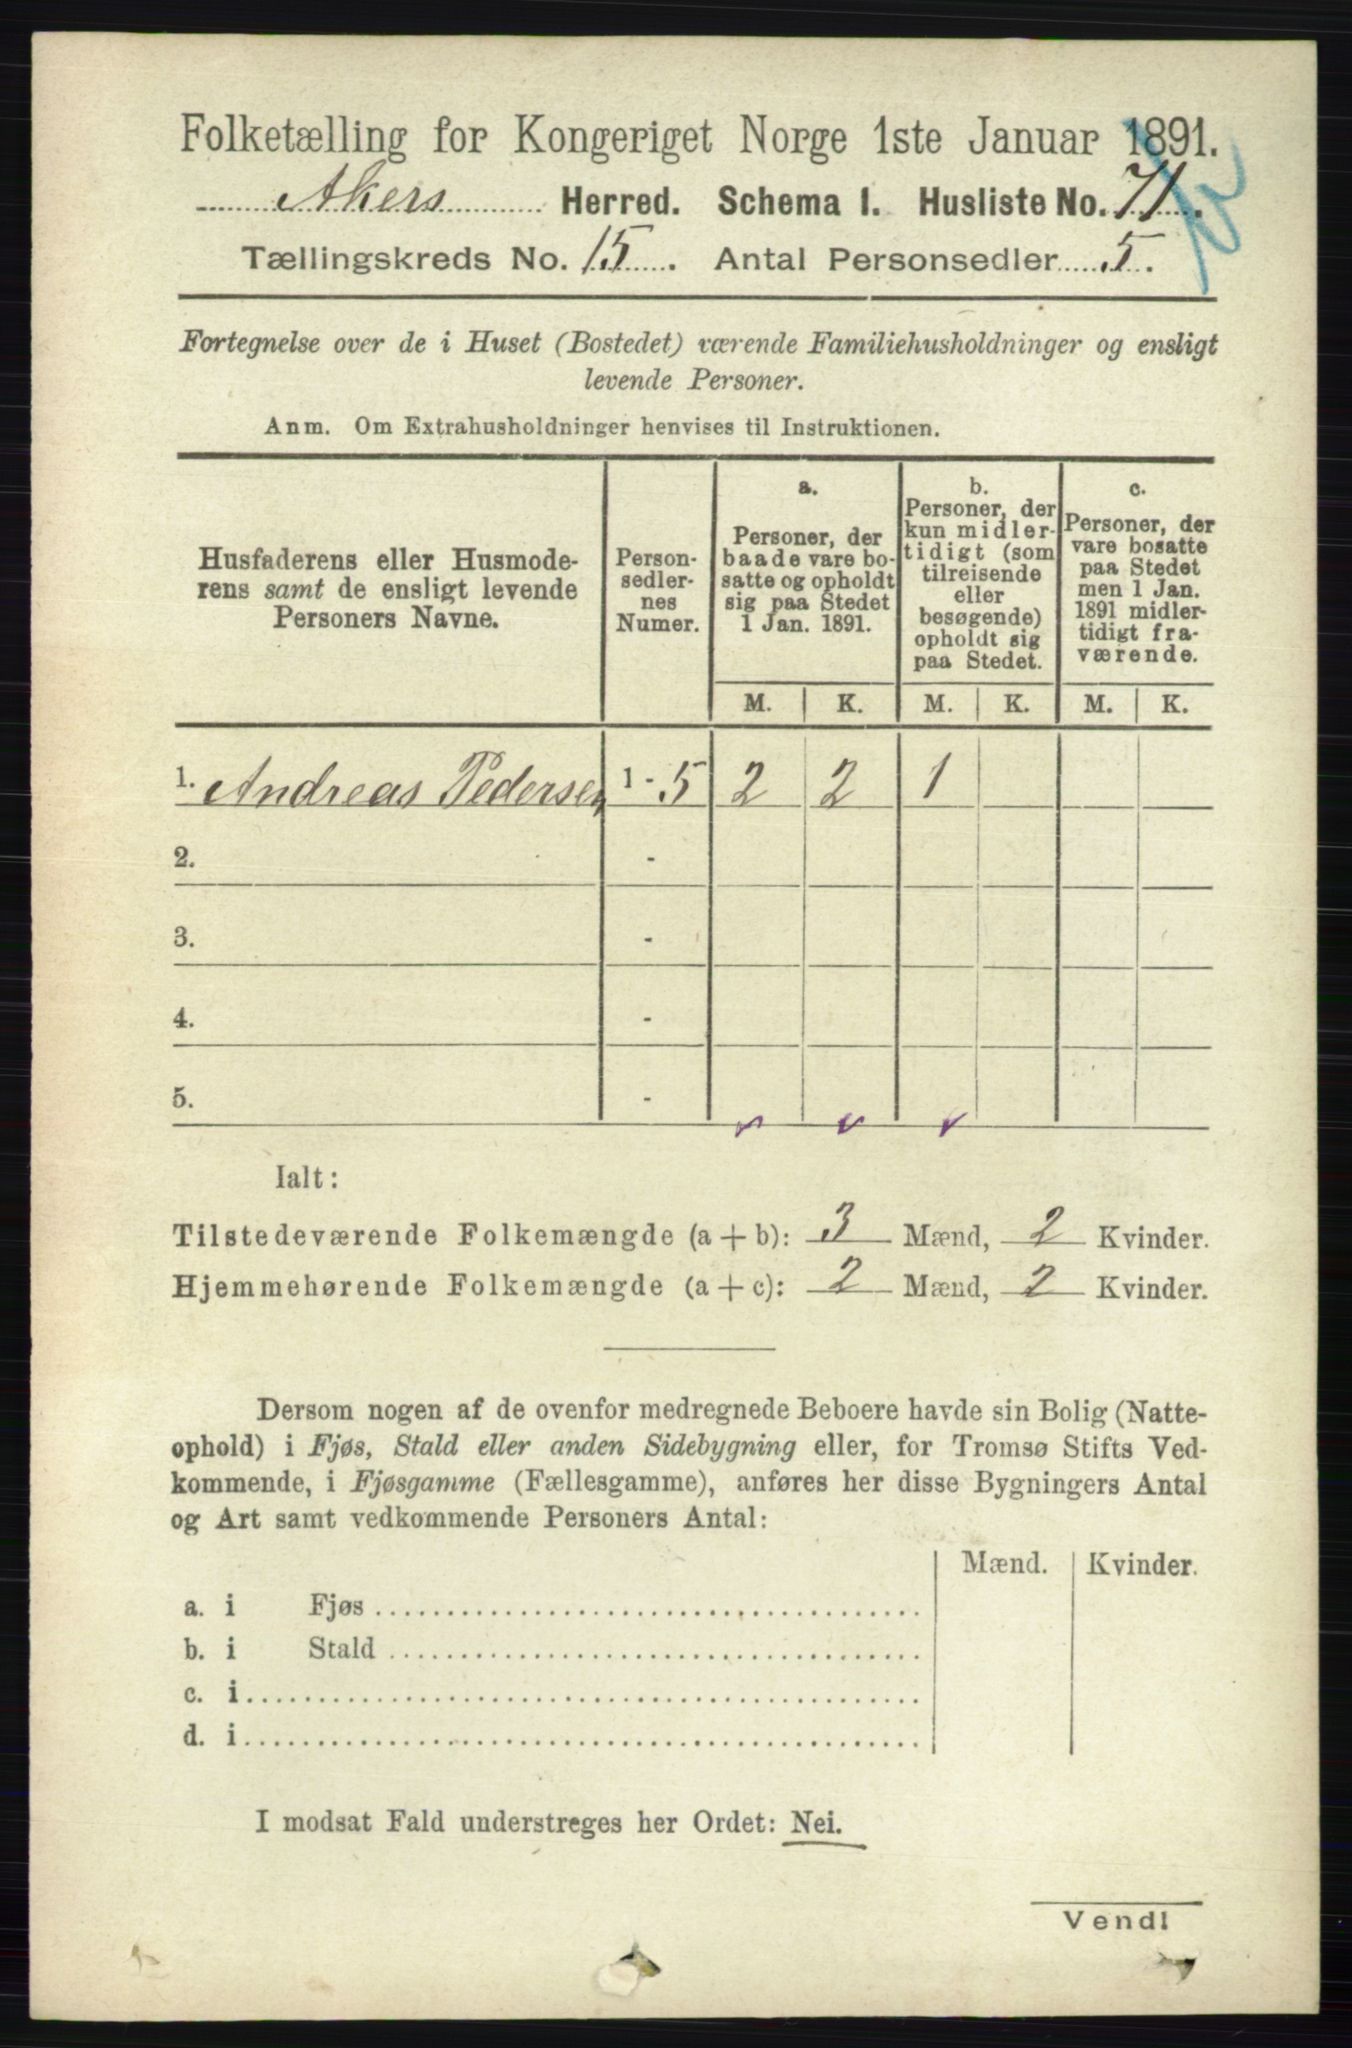 Folketælling for Kongeriget Norge 1ste Januar 1891.
Akers Herred. Schema 1. Husliste No. 71.
Tællingskreds No. 15. Antal Personsedler 5.
Fortegnelse over de i Huset (Bostedet) værende Familiehusholdninger og ensligt
levende Personer.
Anm. Om Extrahusholdninger henvises til Instruktionen.
Husfaderens eller Husmode-
rens samt de ensligt levende
Personers Navne.
Person-
sedler-
nes
Numer.
a.
Personer, der
baade vare bo-
satte og opholdt
sig paa Stedet
1 Jan. 1891.
b.
Personer, der
kun midler-
tidigt (som
tilreisende
eller
besøgende)
opholdt sig
paa Stedet.
c.
Personer, der
vare bosatte
paa Stedet
men 1 Jan.
1891 midler-
tidigt fra-
værende.
M. K. M. K. M. K.
1. Andreas Pedersen 1 - 5 2 2 1
2. -
3. -
4. -
5. -
Ialt:
Tilstedeværende Folkemængde (a + b): 3 Mænd, 2 Kvinder.
Hjemmehørende Folkemængde (a + c): 2 Mænd, 2 Kvinder.
Dersom nogen af de ovenfor medregnede Beboere havde sin Bolig (Natte-
ophold) i Fjøs, Stald eller anden Sidebygning eller, for Tromsø Stifts Ved-
kommende, i Fjøsgamme (Fællesgamme), anføres her disse Bygningers Antal
og Art samt vedkommende Personers Antal:
Mænd. Kvinder.
a. i Fjøs
b. i Stald
c. i
d. i
I modsat Fald understreges her Ordet: Nei.
Vend!